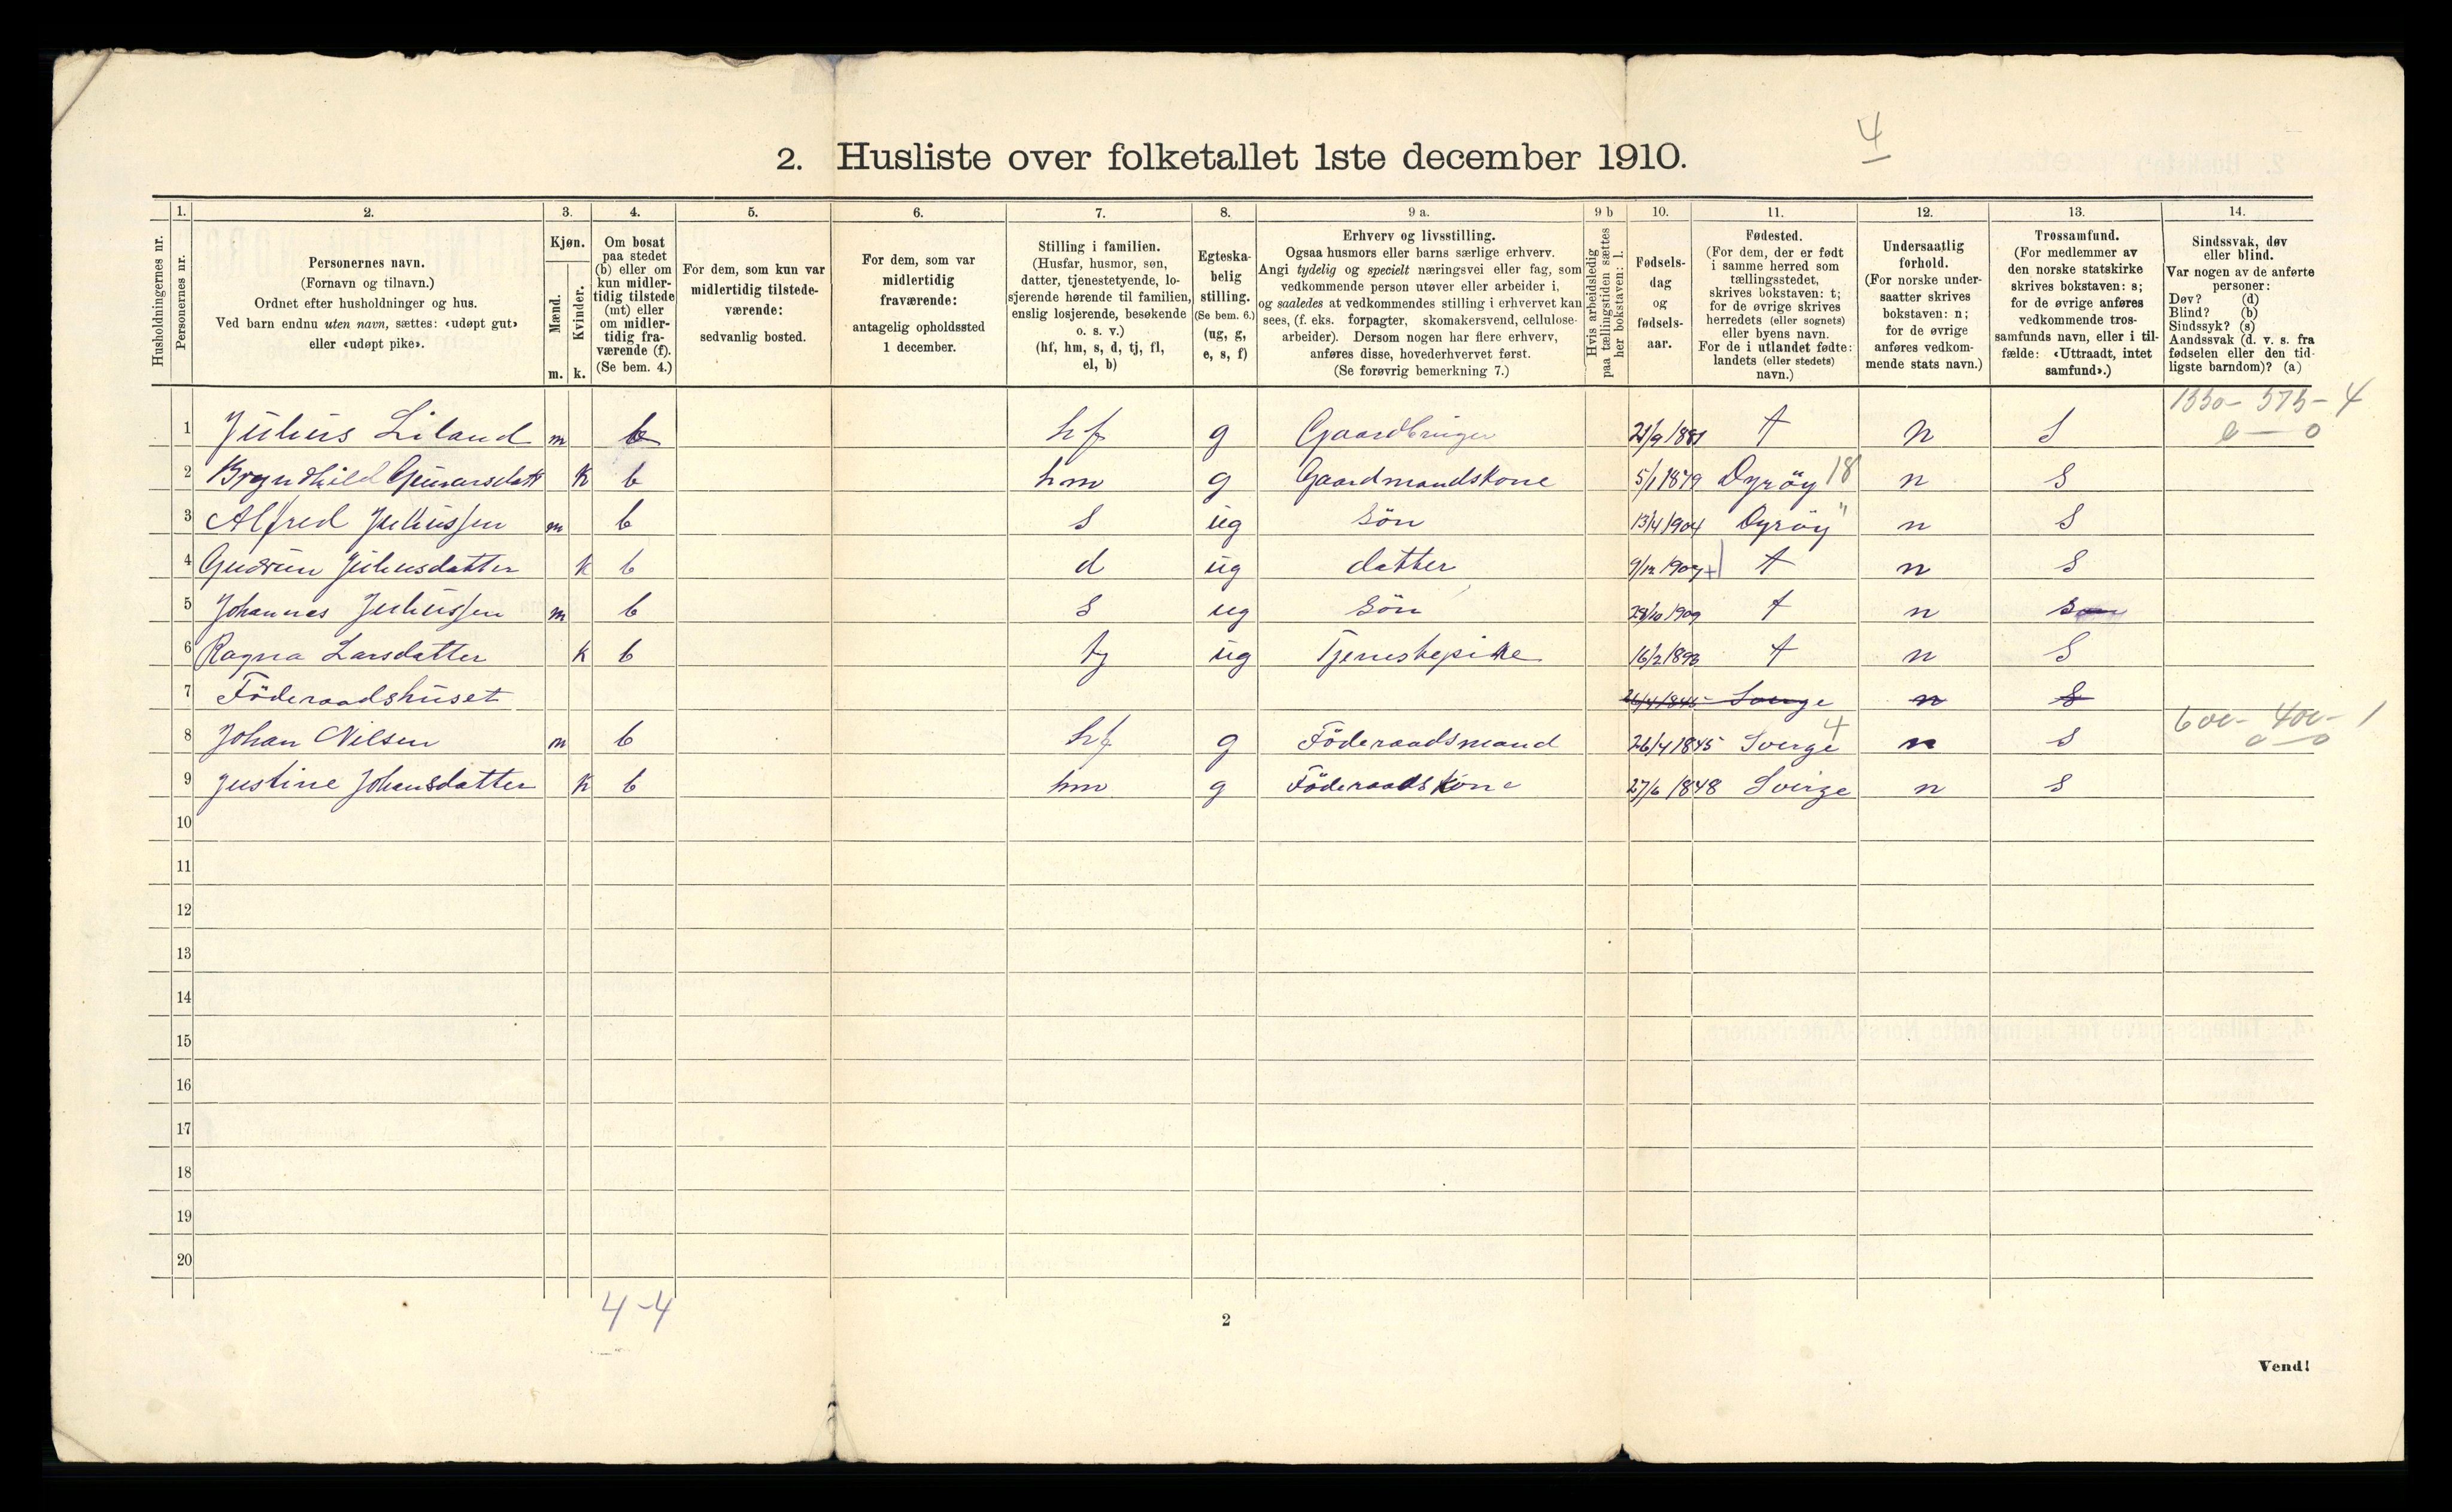 4
2. Husliste over folketallet 1ste december 1910.
Husholdningernes nr.
1. Personernes nr.
2. Personernes navn. (Fornavn og tilnavn.) Ordnet efter husholdninger og hus. Ved barn endnu uten navn, sættes: «udøpt gut» eller «udøpt pike».
3. Kjøn. Mænd. m. Kvinder. k.
4. Om bosat paa stedet (b) eller om kun midlertidig tilstede (mt) eller om midlertidig fraværende (f). (Se bem. 4.)
5. For dem, som kun var midlertidig tilstedeværende: sedvanlig bosted.
6. For dem, som var midlertidig fraværende: antagelig opholdssted 1 december.
7. Stilling i familien. (Husfar, husmor, søn, datter, tjenestetyende, losjerende hørende til familien, enslig losjerende, besøkende o. s. v.) (hf, hm, s, d, tj, fl, el, b)
8. Egteskabelig stilling. (Se bem. 6.) (ug, g, e, s, f)
9 a. Erhverv og livsstilling. Ogsaa husmors eller barns særlige erhverv. Angi tydelig og specielt næringsvei eller fag, som vedkommende person utøver eller arbeider i, og saaledes at vedkommendes stilling i erhvervet kan sees, (f. eks. forpagter, skomakersvend, cellulosearbeider). Dersom nogen har flere erhverv, anføres disse, hovederhvervet først. (Se forøvrig bemerkning 7.)
9 b Hvis arbeidsledig paa tællingstiden sættes her bokstaven: l.
10. Fødselsdag og fødselsaar.
11. Fødested. (For dem, der er født i samme herred som tællingsstedet, skrives bokstaven: t; for de øvrige skrives herredets (eller sognets) eller byens navn. For de i utlandet fødte: landets (eller stedets) navn.)
12. Undersaatlig forhold. (For norske undersaatter skrives bokstaven: n; for de øvrige anføres vedkommende stats navn.)
13. Trossamfund. (For medlemmer av den norske statskirke skrives bokstaven: s; for de øvrige anføres vedkommende trossamfunds navn, eller i tilfælde: «Uttraadt, intet samfund».)
14. Sindssvak, døv eller blind. Var nogen av de anførte personer: Døv? (d) Blind? (b) Sindssyk? (s) Aandssvak (d. v. s. fra fødselen eller den tidligste barndom)? (a)
1350- 575- 4
1 Julius Liland m b hf g Gaardbruger 21/9 1881 t n S 0 — 0
2 Bryndhild Gunarsdatt k b hm g Gaardmandskone 5/1 1879 Dyröy 18 n S
3 Alfred Juliussen m b S ug Sön 13/4 1904 Dyröy " n S
4 Gudrun Juliusdatter k b d ug datter 9/12 1907 t n S
5 Johannes Juliussen m b S ug Sön 28/10 1909 t n S
6 Ragna Larsdatter k b tj ug Tjenestepike 16/2 1893 t n S
7 Föderaadshuset 26/4 1845 Sverge n S
600- 400- 1
8 Johan Nilsen m b hf g Föderaadsmand 26/4 1845 Sverge 4 n S 0 — 0
9 Justine Johansdatter k b hm g Föderaadskone 27/6 1848 Sverge n S
10
11
12
13
14
15
16
17
18
19
20
4-4
2
Vend!